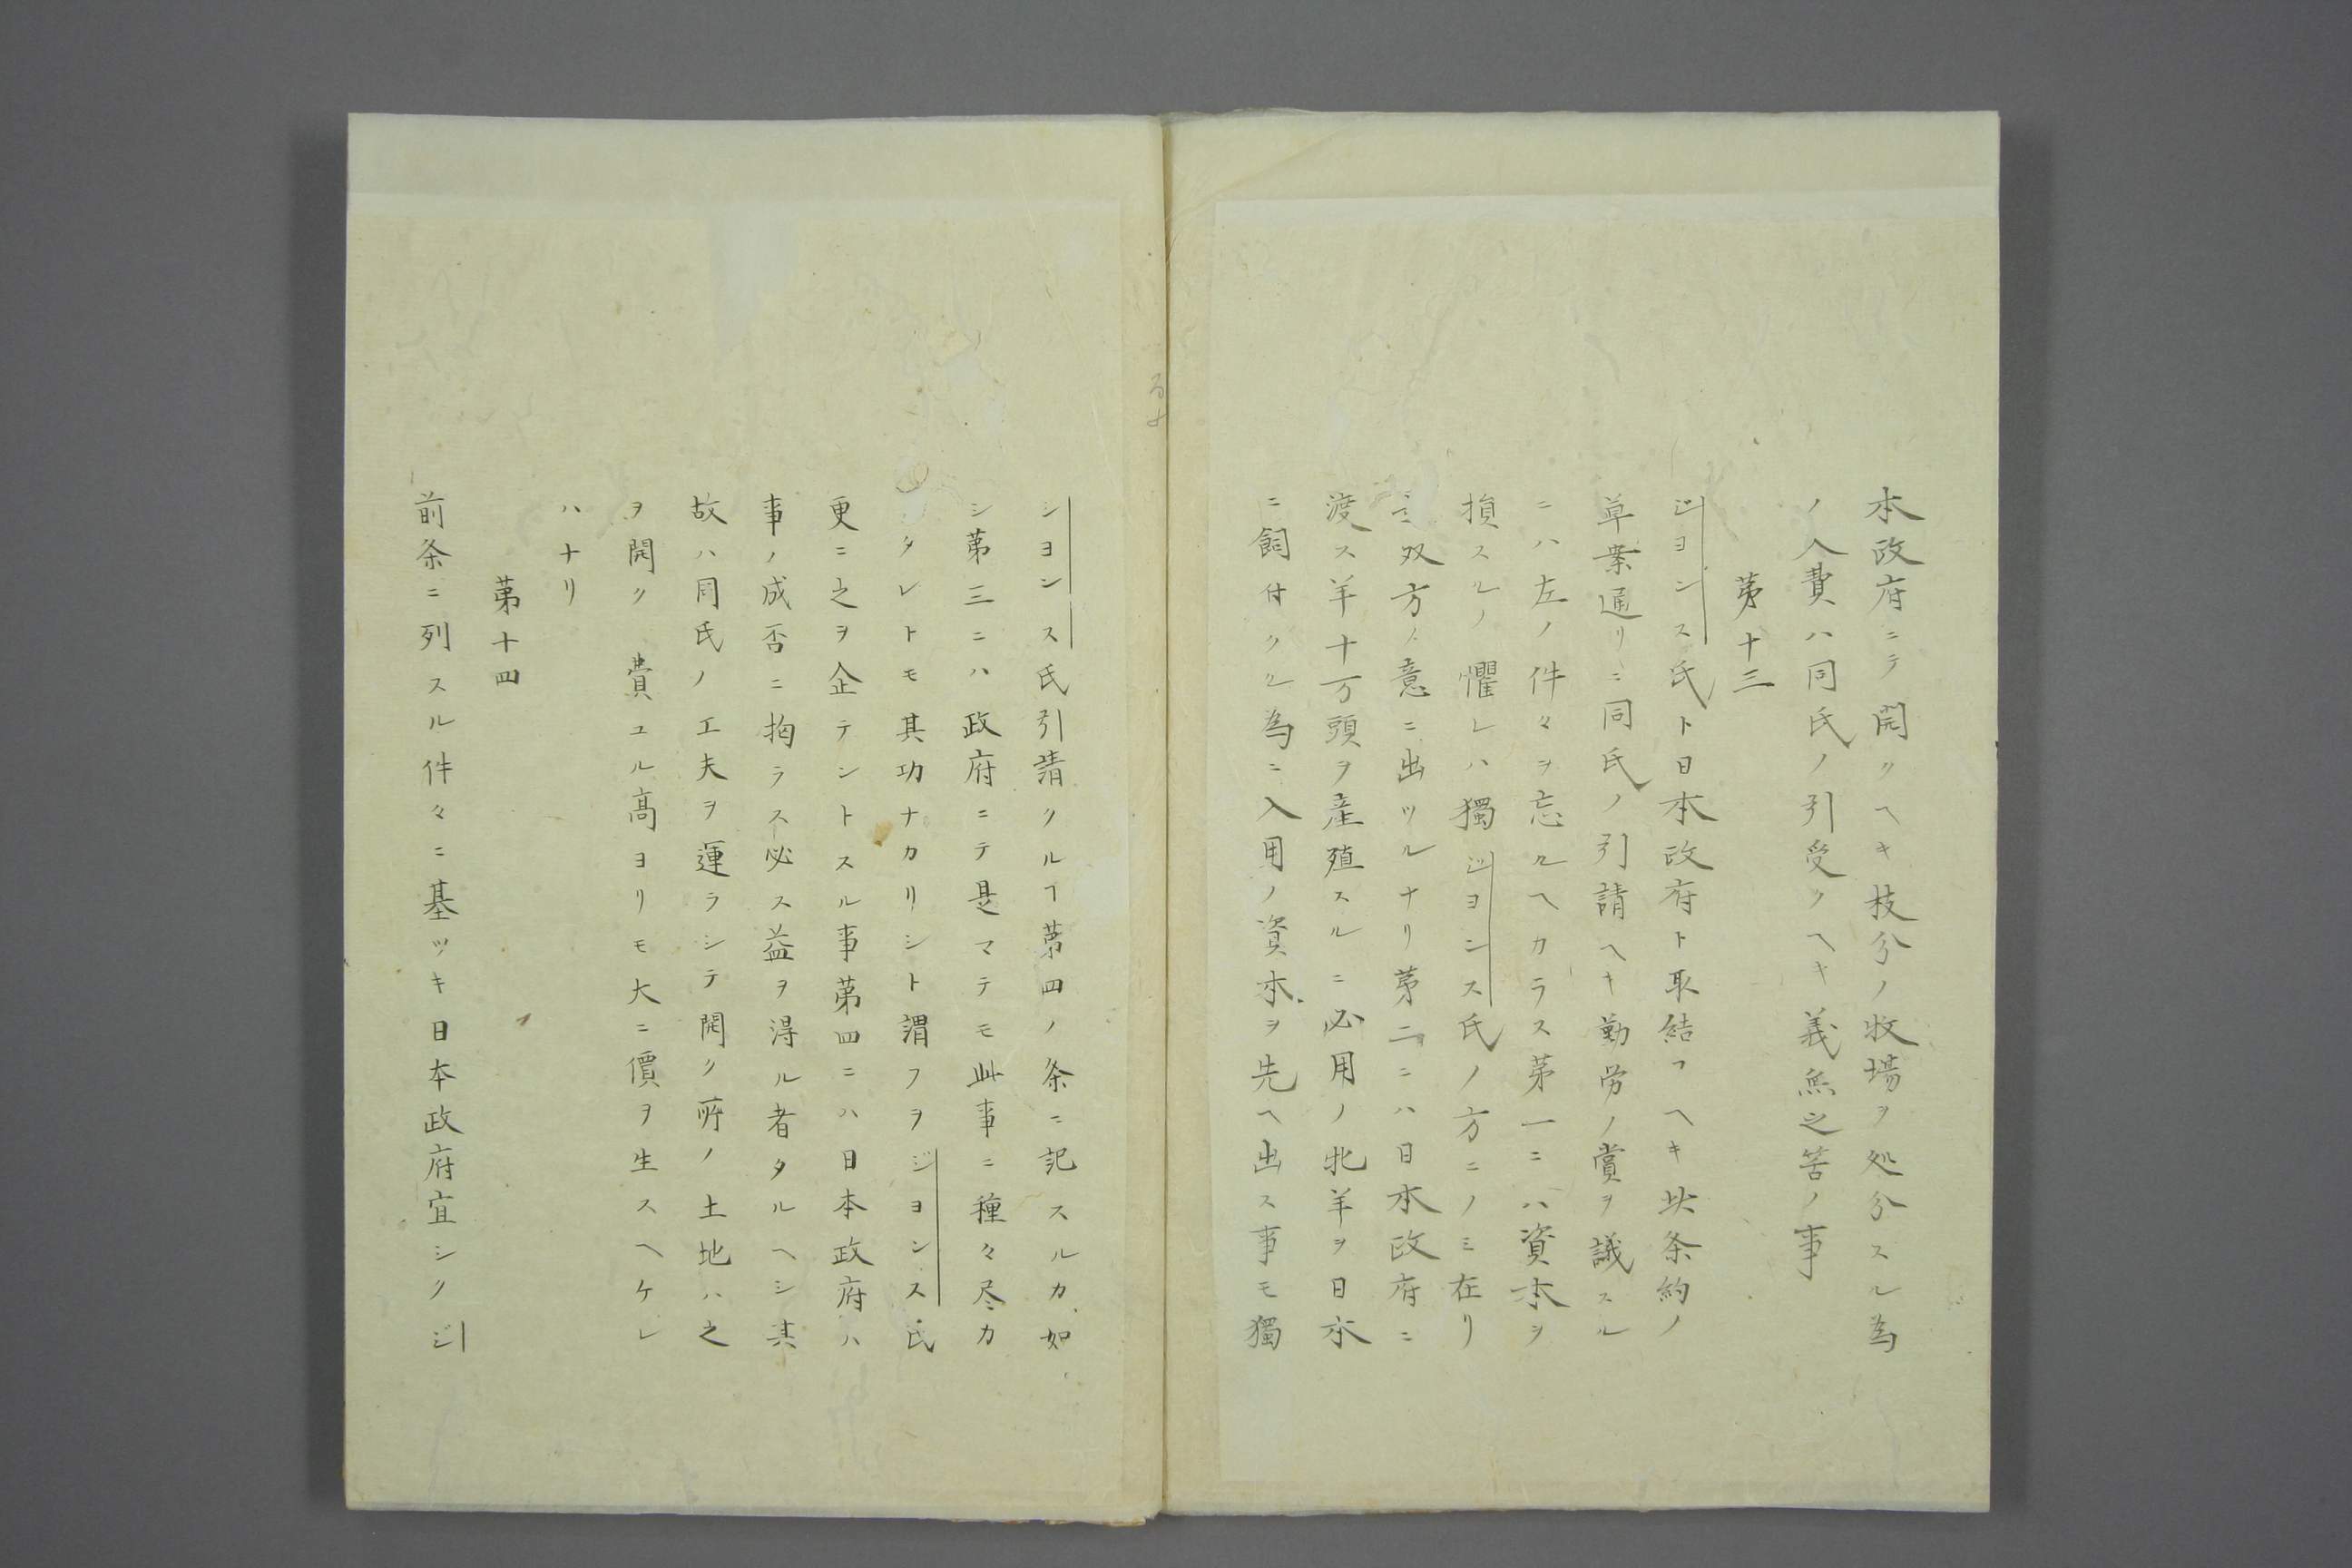 本政府ニテ開クヘキ枝分ノ牧場ヲ処分スル為
ノ入費ハ同氏ノ引受クヘキ義無之筈ノ事
第十三
ジヨンス氏ト日本政府ト取結フヘキ此条約ノ
草案通リニ同氏ノ引請ヘキ勤労ノ賞ヲ議スル
ニハ左ノ件々ヲ忘ルヘカラス第一ニハ資本ヲ
損スルノ懼レハ獨ジヨンス氏ノ方ニノミ在リ
ミ双方ノ意ニ出ツルナリ第二ニハ日本政府ニ
渡ス羊十万頭ヲ産殖スルニ必用ノ牝羊ヲ日本
ニ飼付クル為ニ入用ノ資本ヲ先ヘ出ス事モ獨
シヨンス氏引請クルヿ第四ノ条ニ記スルカ如
シ第三ニハ政府ニテ是マテモ此事ニ種々尽力
シタレトモ其功ナカリシト謂フヲジヨンス氏
更ニ之ヲ企テントスル事第四ニハ日本政府ハ
事ノ成否ニ拘ラス必ス益ヲ得ル者タルヘシ其
故ハ同氏ノ工夫ヲ運ラシテ開ク所ノ土地ハ之
ヲ開ク費ユル高ヨリモ大ニ價ヲ生スヘケレ
ハナリ
第十四
前条ニ列スル件々ニ基ツキ日本政府宜シクジ